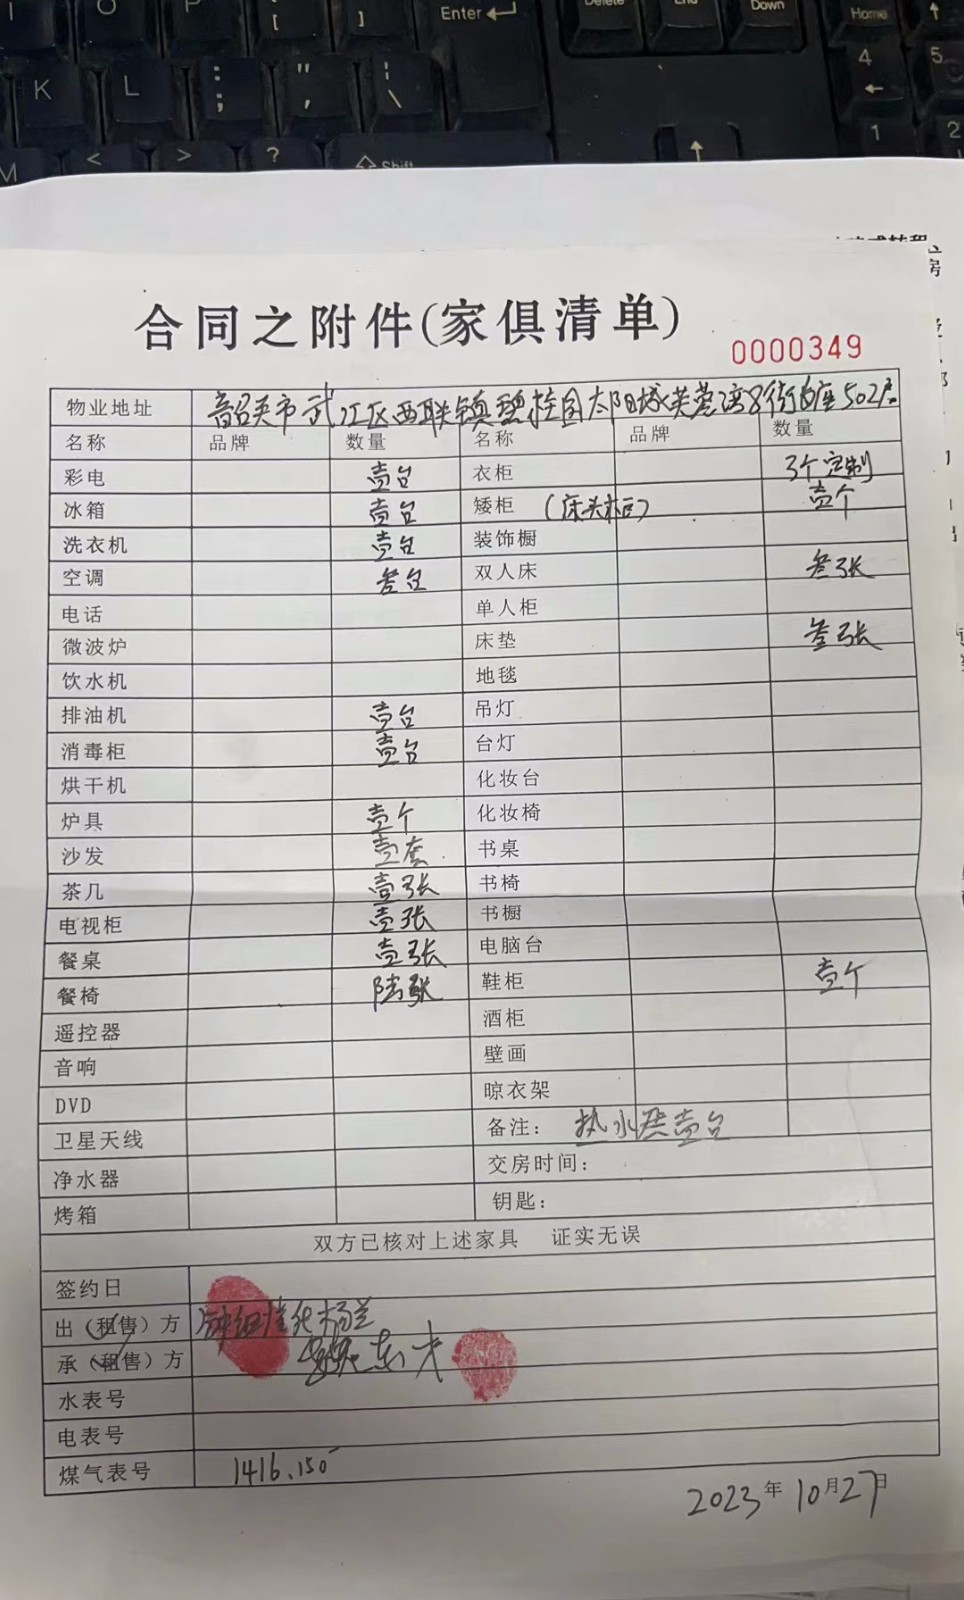 I O P [ Enter Delete End Down Home
K L : ; " ' | \ 4 5
M < > ? Shift 1 2
房
合同之附件(家俱清单)
0000349
物业地址 韶关市武江区西联镇碧桂园太阳城芙蓉湾8街6座502房
名称 品牌 数量 名称 品牌 数量
彩电 壹台 衣柜 3个定制
冰箱 壹台 矮柜 (床头柜) 壹个
洗衣机 壹台 装饰橱
空调 叁台 双人床 叁张
电话 单人柜
微波炉 床垫 叁张
饮水机 地毯
排油机 壹台 吊灯
消毒柜 壹台 台灯
烘干机 化妆台
炉具 壹个 化妆椅
沙发 壹套 书桌
茶几 壹张 书椅
电视柜 壹张 书橱
餐桌 壹张 电脑台
餐椅 陆张 鞋柜 壹个
遥控器 酒柜
音响 壁画
DVD 晾衣架
卫星天线 备注: 热水器壹台
净水器 交房时间:
烤箱 钥匙:
双方已核对上述家具 证实无误
签约日
出(租售)方
承(租售)方
水表号
电表号
煤气表号 1416.150
2023年10月27日